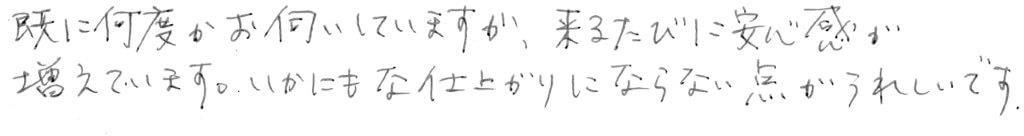 既に何度かお伺いしていますが、来るたびに安心感が
増えています。いかにもな仕上がりにならない点がうれしいです.